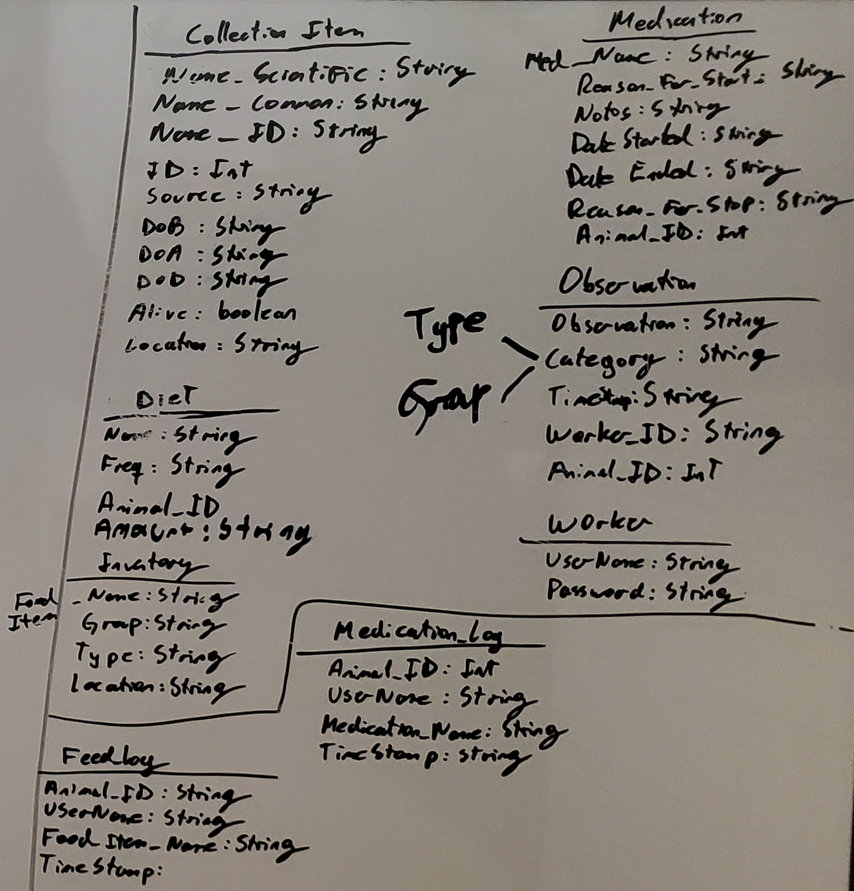 Collection Item
Name_Scientific: String
Name_Common: String
Name_ID: String
ID: Int
Source: String
DoB: String
DoA: String
DoD: String
Alive: boolean
Location: String
Diet
Name: String
Freq: String
Animal_ID
Amount: String
Invatory
Food Item
_Name: String
Group: String
Type: String
Location: String
Feedlog
Animal_ID: String
UserName: String
Food Item_Name: String
TimeStamp:
Medication
Med_Name: String
Reason_For_Start: String
Notes: String
Date Started: String
Date Ended: String
Reason_For_Stop: String
Animal_ID: Int
Observation
Observation: String
Type
Group
Category: String
TimeStamp: String
Worker_ID: String
Animal_ID: InT
Worker
UserName: String
Password: String
Medication_Log
Animal_ID: Int
UserName: String
Medication_Name: String
TimeStamp: String